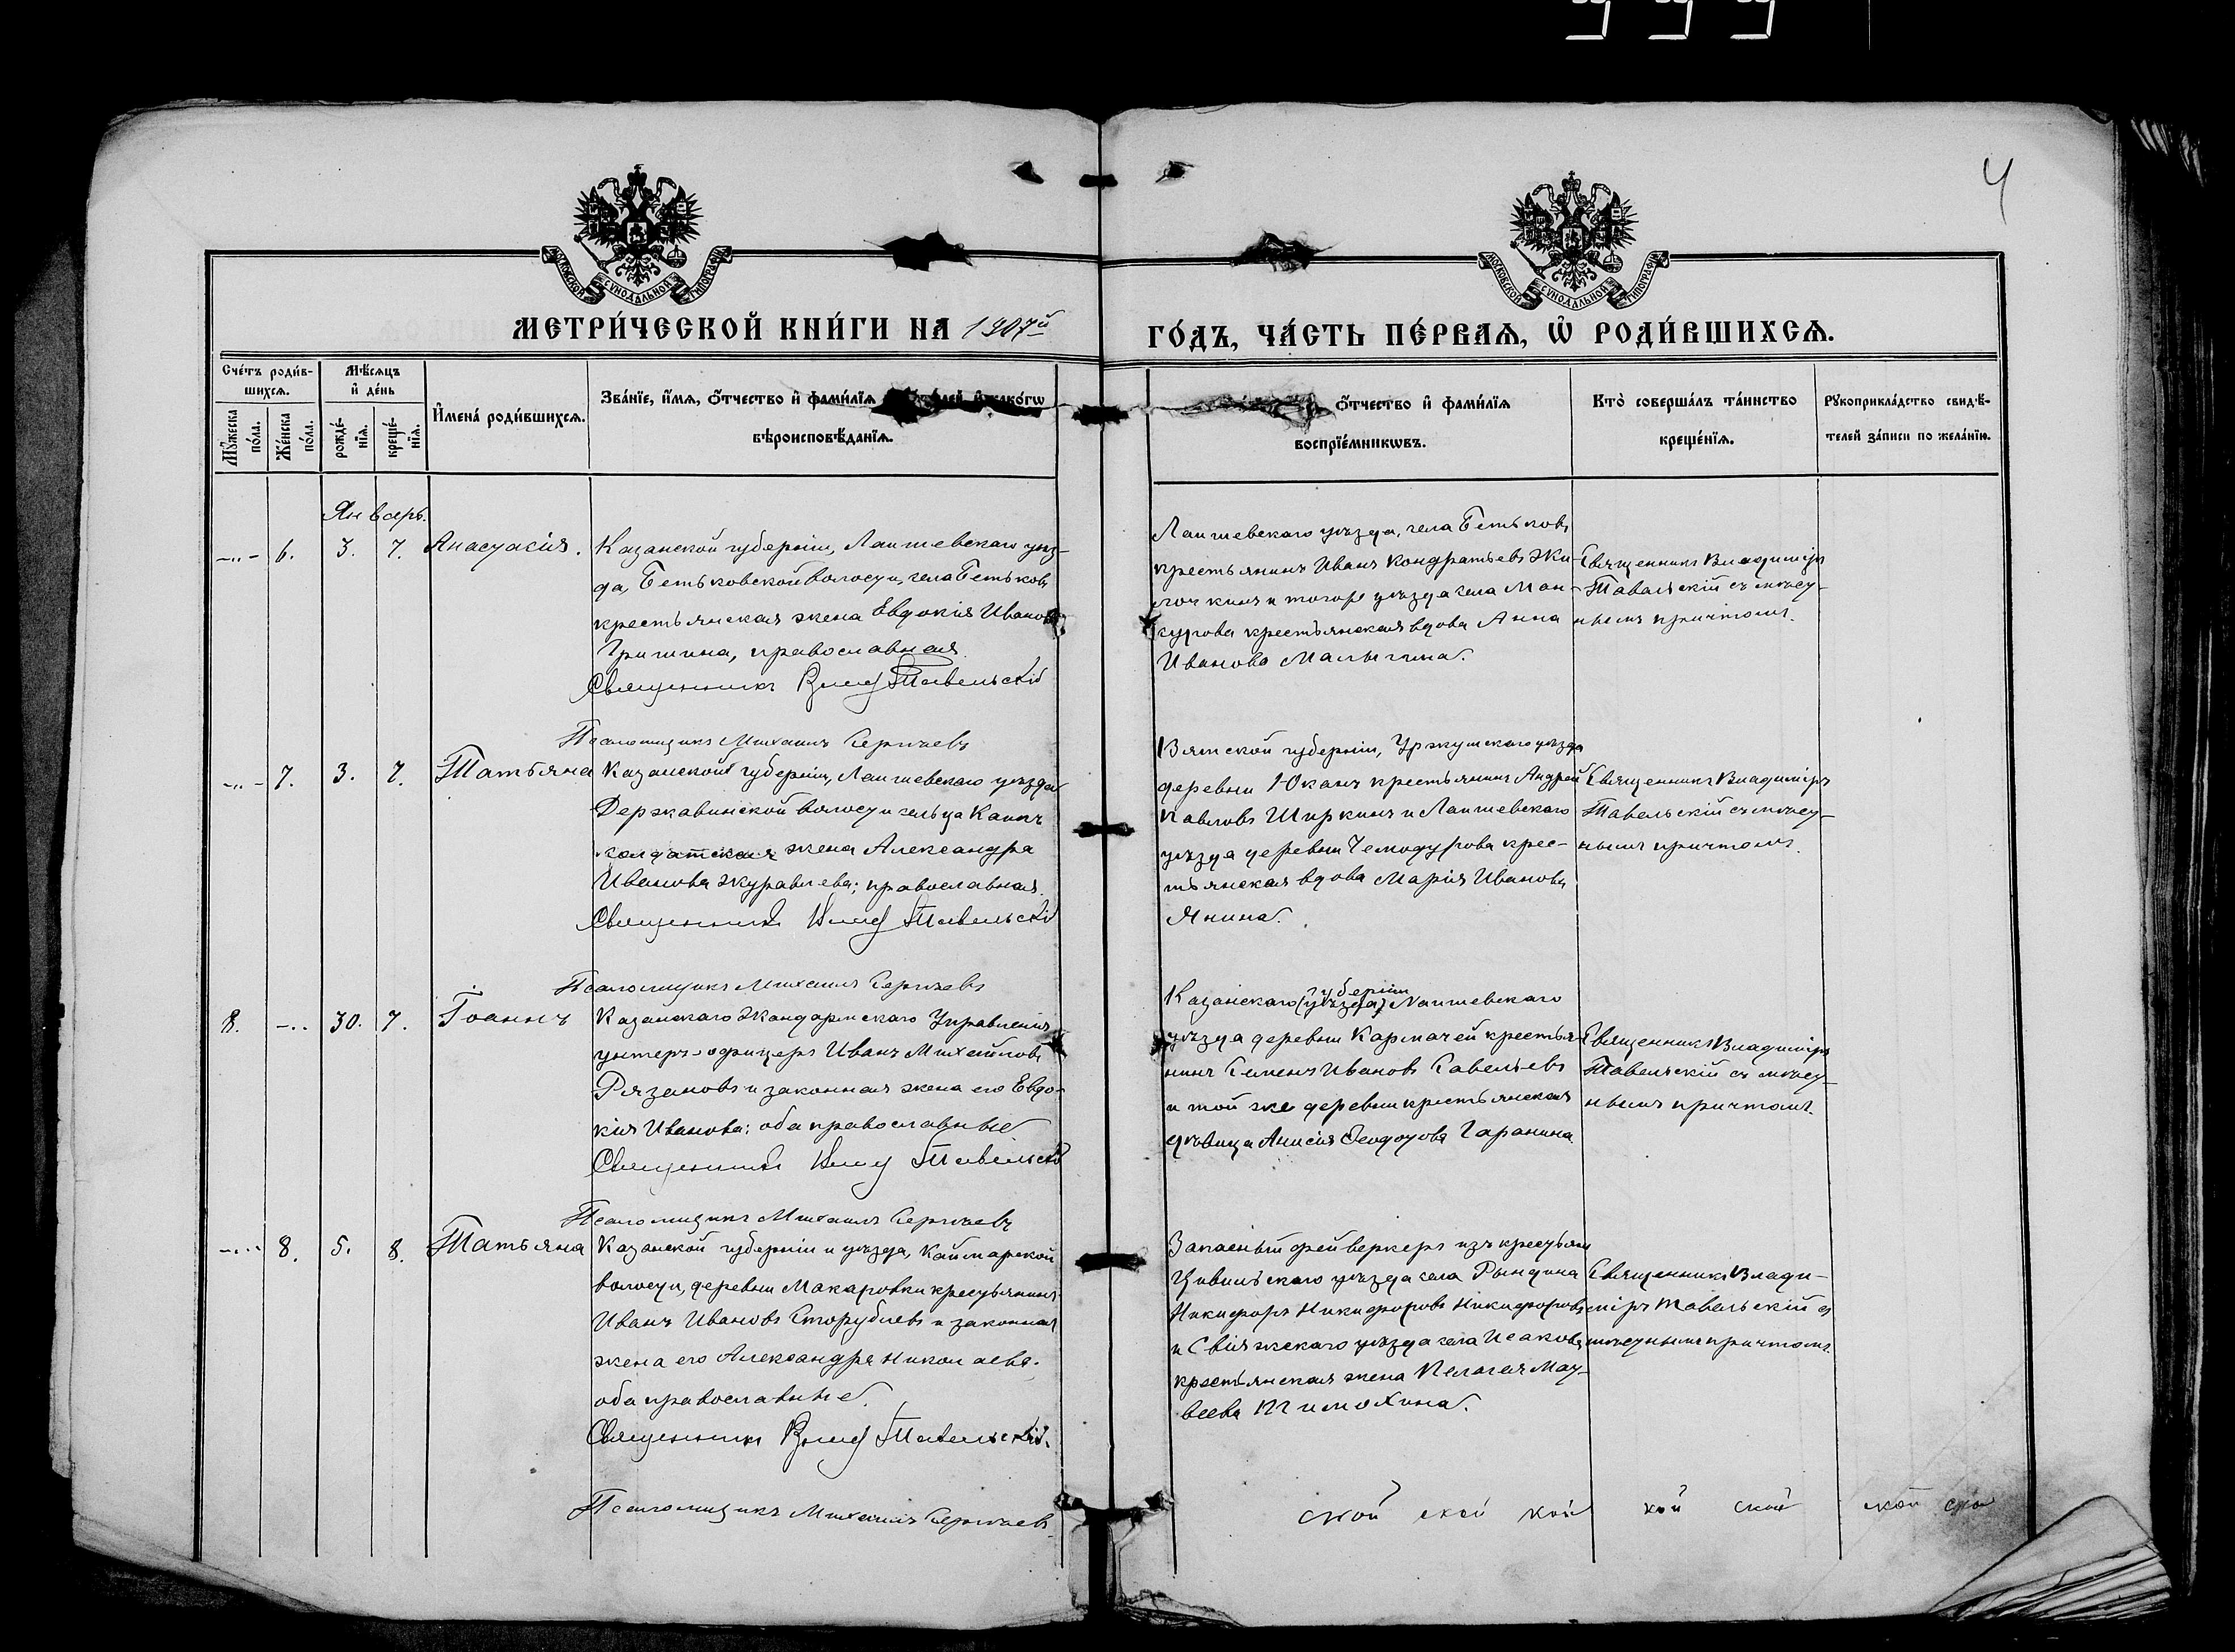 4
МОСКОВСКОЙ СѴНОДАЛЬНОЙ ТИПОГРАФІИ
МОСКОВСКОЙ СѴНОДАЛЬНОЙ ТИПОГРАФІИ
МЕТРИ́ЧЕСКОЙ КНИ́ГИ НА 1907й ГО́ДЪ, ЧА́СТЬ ПЕ́РВАѦ, Ѡ҆ РОДИ́ВШИХСѦ.
Сче́тъ роди́в-
шихсѧ.
Мѣ́сѧцъ
и҆ де́нь
Мꙋ́жеска по́ла.
Же́нска по́ла.
рожде́-
нїѧ.
креще́-
нїѧ.
И҆мена̀ роди́вшихсѧ.
Зва́нїе, и҆́мѧ, ѻ҆́тчество и҆ фами́лїѧ
вѣроисповѣ́данїѧ.
ѻ҆́тчество и҆ фами́лїѧ
воспрїе́мникѡвъ.
Кто̀ соверша́лъ та́инство
креще́нїѧ.
Рꙋкоприкла́дство свидѣ́-
телей за́писи по жела́нїю.
Январь.
-..- 6. 3. 7. Анастасія.
Казанской губерніи, Лаишевскаго уѣз-
да, Бетьковской волости, села Бетьковъ
крестьянская жена Евдокія Иванова
Гришина, православная
Священникъ Влад Тавельскій
Псаломщикъ Михаилъ Сергѣевъ
Лаишевскаго уѣзда, села Бетьковъ
крестьянинъ Иванъ Кондратьевъ Жи-
лочкинъ и тогоже уѣзда села Ман-
сурова крестьянская вдова Анна
Иванова Малыгина.
Священникъ Владиміръ
Тавельскій съ мѣст-
нымъ причтомъ.
-..- 7. 3. 7. Татьяна
Казанской губерніи, Лаишевскаго уѣзда
Державинской волости сельца Каипъ
солдатская жена Александра
Иванова Журавлева; православная.
Священникъ Влад Тавельскій
Псаломщикъ Михаилъ Сергѣевъ
Вятской губерніи, Уржумскаго уѣзда
деревни Юканъ крестьянинъ Андрей
Павловъ Ширкинъ и Лаишевскаго
уѣзда деревни Чемодурова крес-
тьянская вдова Марія Иванова
Янина.
Священникъ Владиміръ
Тавельскій съ мѣст-
нымъ причтомъ.
8. -.. 30. 7. Іоаннъ
Казанскаго Жандармскаго Управленія
унтеръ-офицеръ Иванъ Михайловъ
Рязановъ и законная жена его Евдо-
кія Иванова; оба православные
Священникъ Влад Тавельскій
Псаломщикъ Михаилъ Сергѣевъ
губерніи
Казанскаго (уѣзда) Лаишевскаго
уѣзда деревни Кармачей крестья-
нинъ Семенъ Ивановъ Савельевъ
и той же деревни крестьянская
дѣвица Анисія Ѳеодотова Гаранина
Священникъ Владиміръ
Тавельскій съ мѣст-
нымъ причтомъ.
-... 8. 5. 8. Татьяна
Казанской губерніи и уѣзда, Каймарской
волости, деревни Макаровки крестьянинъ
Иванъ Ивановъ Сторублевъ и законная
жена его Александра Николаева.
оба православные.
Священникъ Влад Тавельскій.
Псаломщикъ Михаилъ Сергѣевъ
Запасный фейверкеръ изъ крестьянъ
Цивильскаго уѣзда села Рындина
Никифоръ Никифоровъ Никифоровъ
и Свіяжскаго уѣзда села Исакова
крестьянская жена Пелагея Мат-
веева Пимохина.
Священникъ Влади-
міръ Тавельскій съ
мѣстнымъ причтомъ.
ской ской кой кой ской ской ско